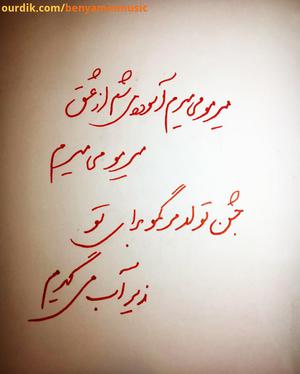 ourdik.com/benyamanmusic
میرمو می میرم آسوده می شم از عشق
میرمو می میرم
جشن تولد مرگمو برای تو
زیر آب می گیرم